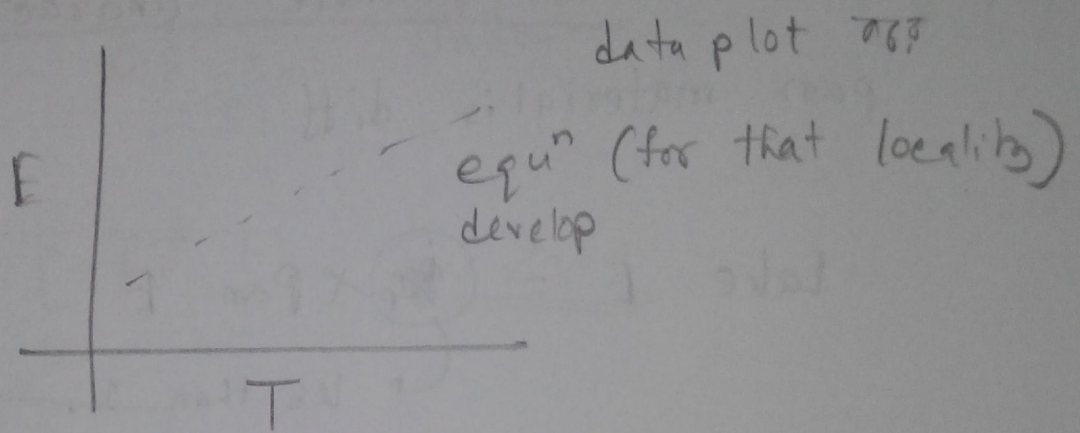 data plot
E
equⁿ (for that locality)
develop
T